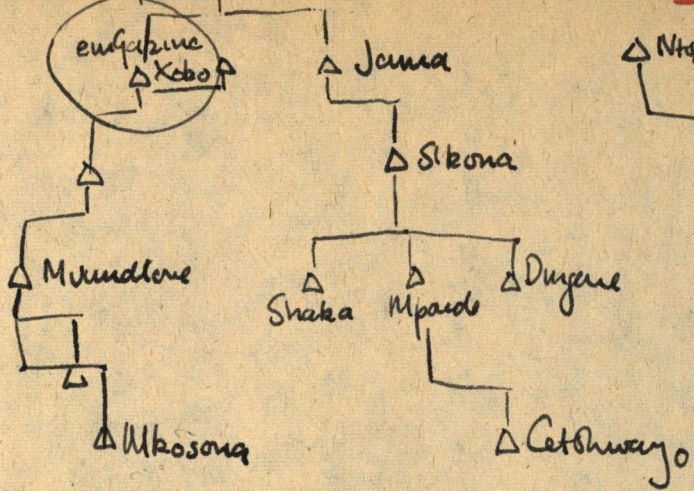 emGazine
Xobo
Jama
Nt
Sikona
Mvundlane
Shaka
Mpande
Dingane
Mkosana
Cetshwayo